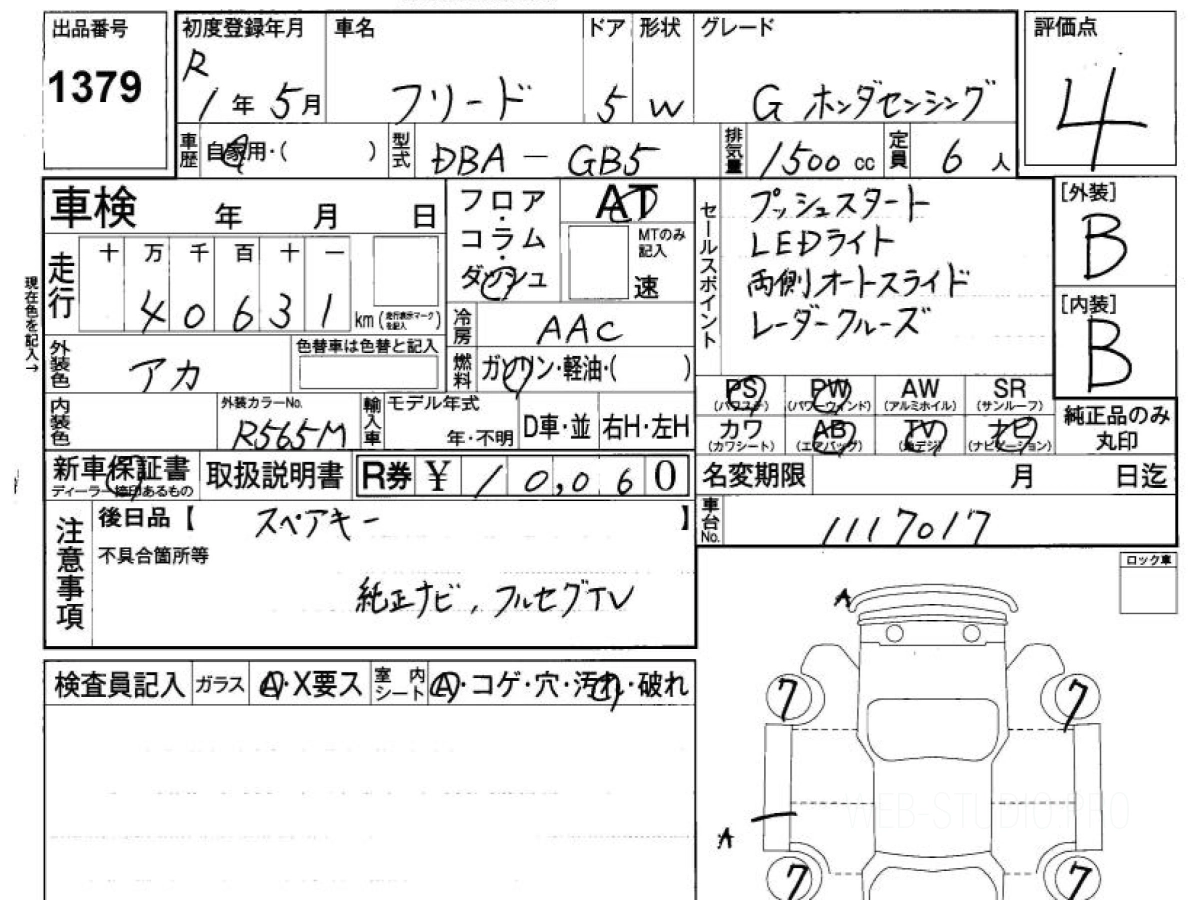 出品番号
1379
初度登録年月 車名 ドア 形状 グレード
R1年5月 フリード 5 W G ホンダセンシング
評価点
4
車歴 自家用・( ) 型式 DBA-GB5 排気量 1500cc 定員 6人
車検 年 月 日
フロア・コラム・ダッシュ
AT
MTのみ記入
速
セールスポイント
プッシュスタート
LEDライト
両側オートスライド
レーダークルーズ
[外装]
B
[内装]
B
現在色を記入→
走行 十 万 千 百 十 一
40631 km (走行表示マークを記入)
冷房 AAC
外装色 アカ 色替車は色替と記入
燃料 ガソリン・軽油・( )
PS (パワステ) PW (パワーウィンド) AW (アルミホイル) SR (サンルーフ)
カワ (カワシート) AB (エアバッグ) TV (地デジ) ナビ (ナビゲーション)
純正品のみ丸印
内装色 外装カラーNo. R565M 輸入車 モデル年式 年・不明 D車・並 右H・左H
新車保証書 ディーラー捺印あるもの 取扱説明書 R券 ¥10,060
名変期限 月 日迄
車台No. 1117017
注意事項
後日品【 スペアキー 】
不具合箇所等
純正ナビ,フルセグTV
ロック車
検査員記入 ガラス A・X要ス 室内シート A・コゲ・穴・汚れ・破れ
A
7 7
A
7 7
WEB-STUDIO.PRO